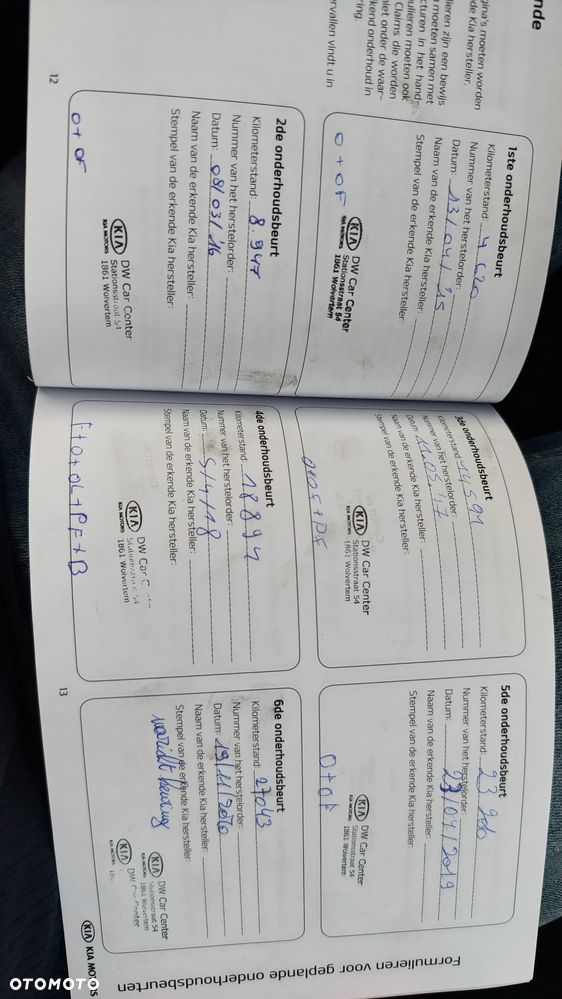 nde
gina's moeten worden
de Kia hersteller.
lieren zijn een bewijs
moeten samen met
cturen in het hand-
ulieren moeten ook
Claims die worden
niet onder de waar-
kend onderhoud in
ring.
ervallen vindt u in
12
1ste onderhoudsbeurt
Kilometerstand: 4 620
Nummer van het herstelorder:
Datum: 13/04/'15
Naam van de erkende Kia hersteller:
Stempel van de erkende Kia hersteller:
KIA
KIA MOTORS
DW Car Center
Stationsstraat 54
1861 Wolvertem
O + OF
2de onderhoudsbeurt
Kilometerstand: 8 947
Nummer van het herstelorder:
Datum: 08/03/'16
Naam van de erkende Kia hersteller:
Stempel van de erkende Kia hersteller:
KIA
KIA MOTORS
DW Car Center
Stationsstraat 54
1861 Wolvertem
O + OF
3de onderhoudsbeurt
Kilometerstand: 14591
Nummer van het herstelorder:
Datum: 11.05.'17
Naam van de erkende Kia hersteller:
Stempel van de erkende Kia hersteller:
KIA
KIA MOTORS
DW Car Center
Stationsstraat 54
1861 Wolvertem
4de onderhoudsbeurt
Kilometerstand: 18894
Nummer van het herstelorder:
Datum: 5/4/18
Naam van de erkende Kia hersteller:
Stempel van de erkende Kia hersteller:
KIA
KIA MOTORS
DW Car
1861 Wolvertem
F+O+OL+PF+B
13
5de onderhoudsbeurt
Kilometerstand: 23 200
Nummer van het herstelorder:
Datum: 29/04/2019
Naam van de erkende Kia hersteller:
Stempel van de erkende Kia hersteller:
KIA
KIA MOTORS
DW Car Center
Stationsstraat 54
1861 Wolvertem
O+OF
6de onderhoudsbeurt
Kilometerstand: 27043
Nummer van het herstelorder:
Datum: 19/11/2020
Naam van de erkende Kia hersteller:
Stempel van de erkende Kia hersteller:
KIA
KIA MOTORS
DW Car Center
Stationsstraat 54
1861 Wolvertem
KIA
DW Car Center
Formulieren voor geplande onderhoudsbeurten
KIA KIA MOTORS
OTOMOTO